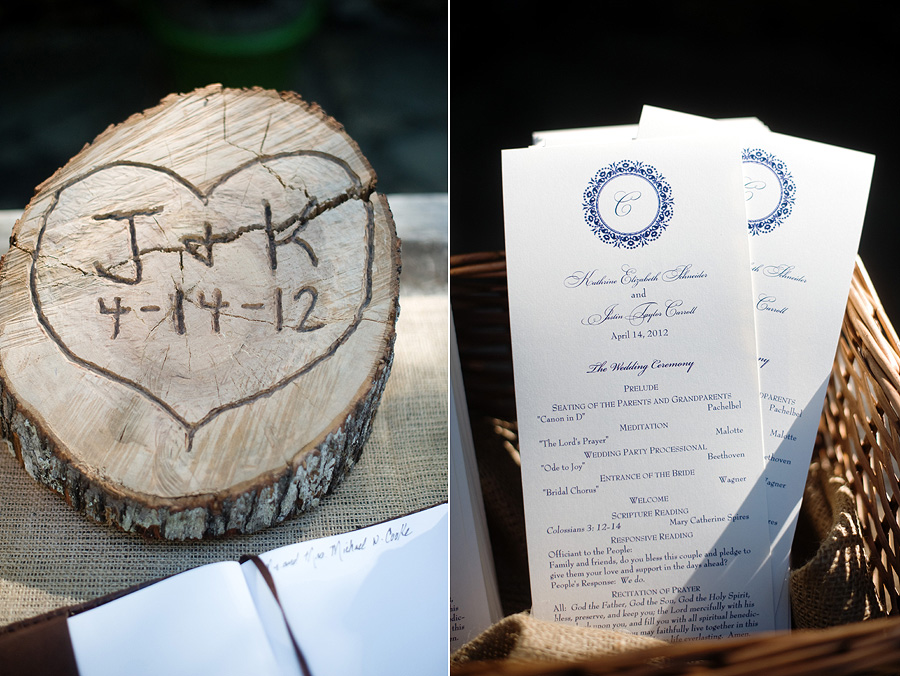 J & K
4-14-12
and Mrs. Michael W. Cooke
C
Kathrine Elizabeth Schneider
and
Justin Taylor Carroll
April 14, 2012
The Wedding Ceremony
PRELUDE
SEATING OF THE PARENTS AND GRANDPARENTS
"Canon in D" Pachelbel
MEDITATION
"The Lord's Prayer" Malotte
WEDDING PARTY PROCESSIONAL
"Ode to Joy" Beethoven
ENTRANCE OF THE BRIDE
"Bridal Chorus" Wagner
WELCOME
SCRIPTURE READING
Colossians 3: 12-14 Mary Catherine Spires
RESPONSIVE READING
Officiant to the People:
Family and friends, do you bless this couple and pledge to
give them your love and support in the days ahead?
People's Response: We do.
RECITATION OF PRAYER
All: God the Father, God the Son, God the Holy Spirit,
bless, preserve, and keep you; the Lord mercifully with his
look upon you, and fill you with all spiritual benedic-
you may faithfully live
life everlasting. Amen.
Schneider
Carroll
PARENTS
Pachelbel
Malotte
Beethoven
Wagner